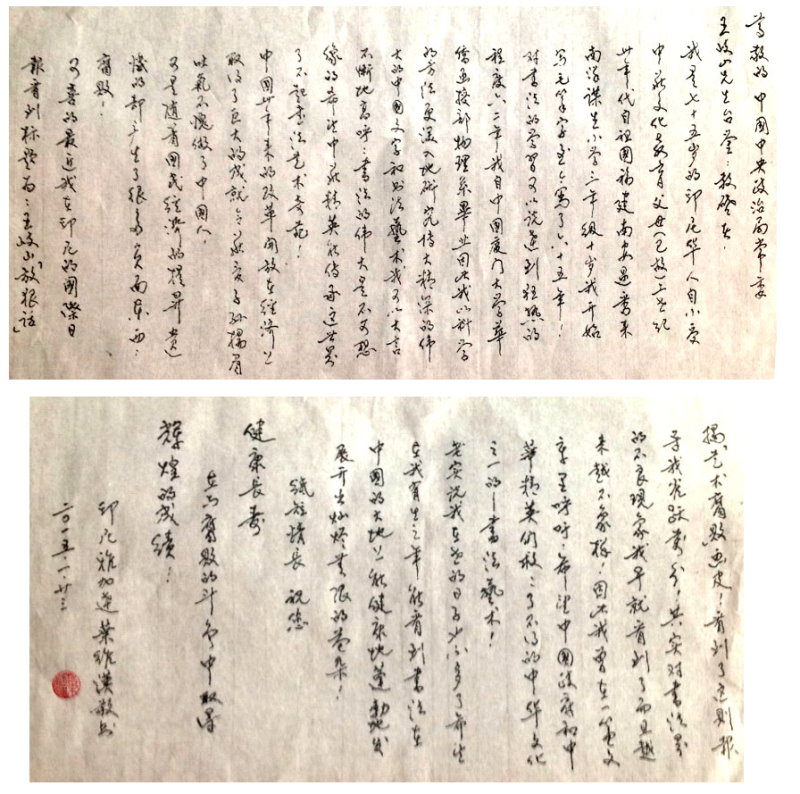 尊敬的 中国中央政治局常委
王岐山先生台鉴：敬启者
我是七十五岁的印尼华人自小受
中华文化教育父母（已故）上世纪
卅年代自祖国福建南安过番来
南洋谋生小学三年级十岁我开始
写毛笔字至今写了六十五年！
对书法的学习可以说达到狂热的
程度六二年我自中国厦门大学华
侨函授部物理系毕业因此我以科学
的方法更深入地研究博大精深的伟
大的中国文字和书法艺术我可以大言
不惭地高呼：书法的伟大是不可想
像的希望中华精英能传承这世界
了不起书法艺术奇葩！
中国卅年来的改革开放在经济上
取得了巨大的成就令炎黄子孙扬眉
吐气不愧做了中国人，
可是随着国民经济的提升遗
憾的却产生了很多负面东西：
腐败！
可喜的最近我在印尼的国际日
报看到标题为：王岐山"放狠话
揭"艺术腐败"画皮！看到了这则报
导我雀跃万分！其实对书法界
的不良现象我早就看到了而且越
来越不象样！因此我曾在一篇文
章里呼吁：希望中国政府和中
华精英们救救了不得的中华文化
之一的——书法艺术！
老实说我在世的日子也不多了希望
在我有生之年能看到书法在
中国的大地上能健康地蓬勃地发
展开出灿烂无限的花朵！
纸短情长 祝您
健康长寿
在反腐败的斗争中取得
辉煌的成绩！
印尼雅加达 叶维汉敬书
二〇一五.一.廿三